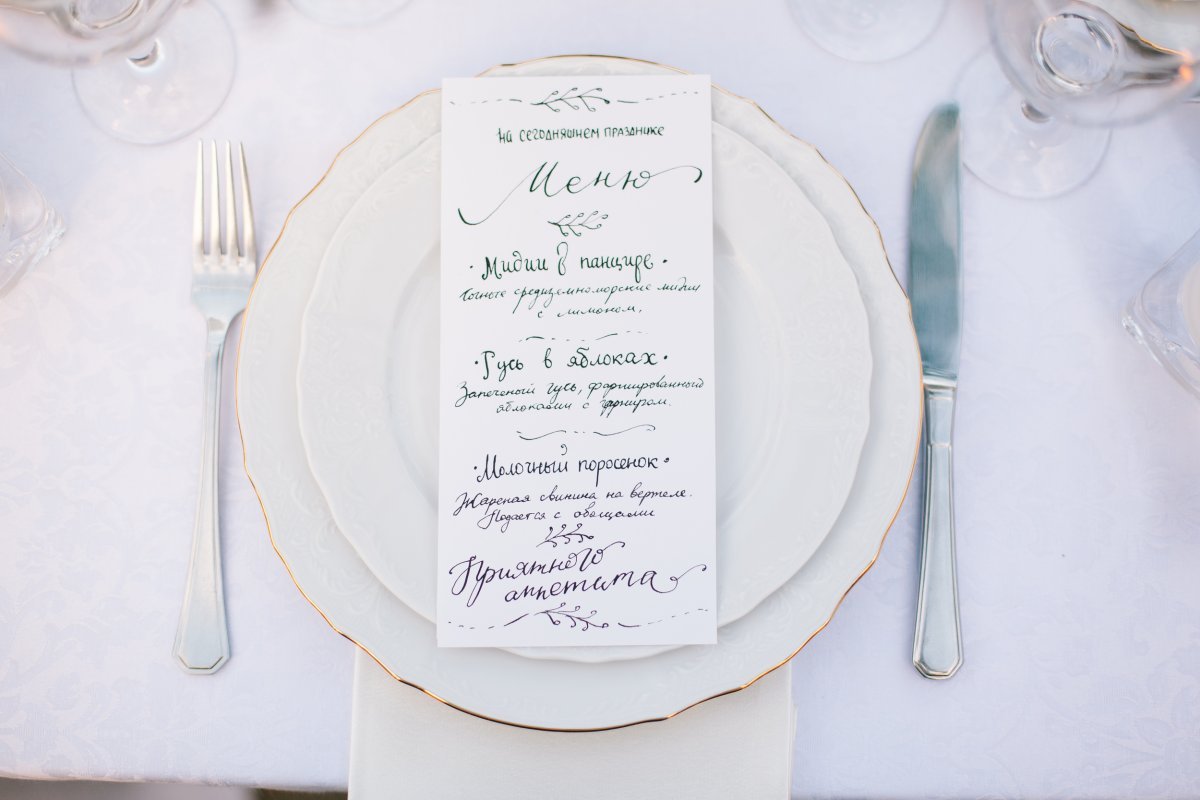 на сегодняшнем празднике
Меню
Мидии в панцире
Сочные средиземноморские мидии
с лимоном.
Гусь в яблоках
Запеченый гусь, фаршированный
яблоками с гарниром.
Молочный поросенок
Жареная свинина на вертеле.
Подается с овощами
Приятного
аппетита